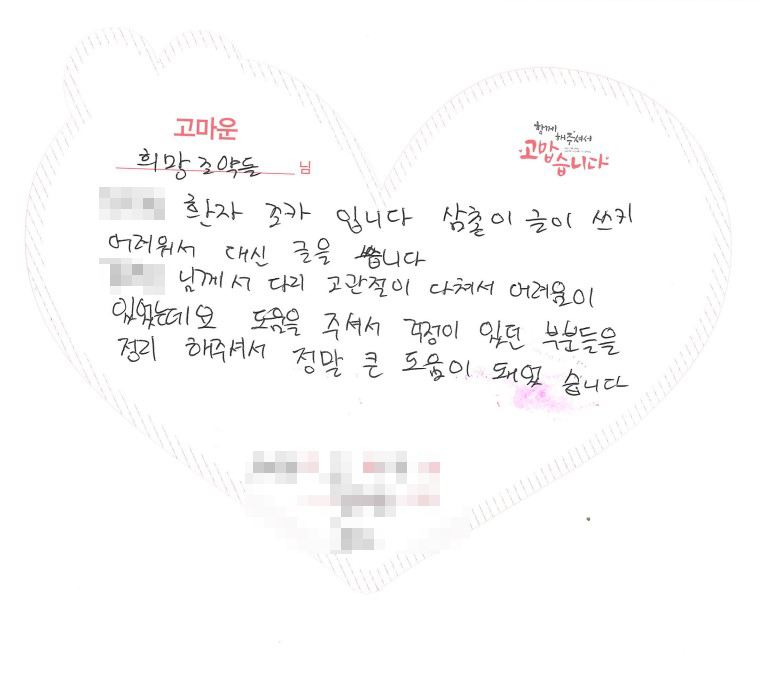 고마운
희망조약돌 님
함께
해주셔서
고맙습니다
환자 조카 입니다 삼촌이 글이 쓰키
어려워서 대신 글을 씁니다
님께서 다리 고관절이 다쳐서 어려움이
있었는데요 도움을 주셔서 걱정이 있던 부분들을
정리 해주셔서 정말 큰 도움이 돼었 습니다